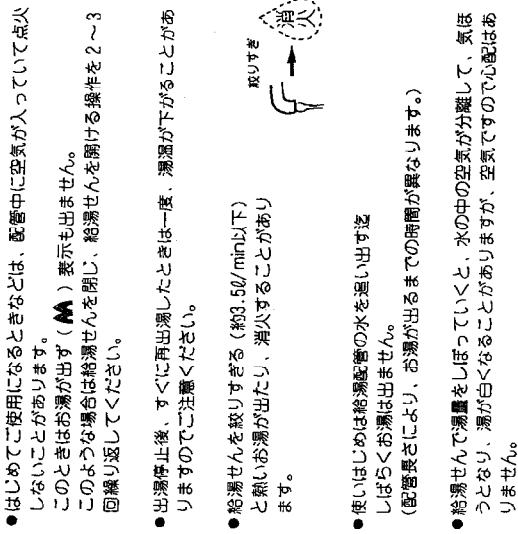 ●はじめてご使用になるときなどは、配管中に空気が入っていて点火
しないことがあります。
このときはお湯が出ず（ ）表示も出ません。
このような場合は給湯せんを閉じ、給湯せんを開ける操作を2～3
回繰り返してください。
●出湯停止後、すぐに再出湯したときは一度、湯温が下がることがあ
りますのでご注意ください。
●給湯せんを絞りすぎる（約3.5ℓ/min以下）
と熱いお湯が出たり、消火することがあり
ます。
絞りすぎ
消火
●使いはじめは給湯配管の水を追い出す迄
しばらくお湯は出ません。
(配管長さにより、お湯が出るまでの時間が異なります。)
●給湯せんで湯量をしぼっていくと、水の中の空気が分離して、気ほ
うとなり、湯が白くなることがありますが、空気ですので心配はあ
りません。